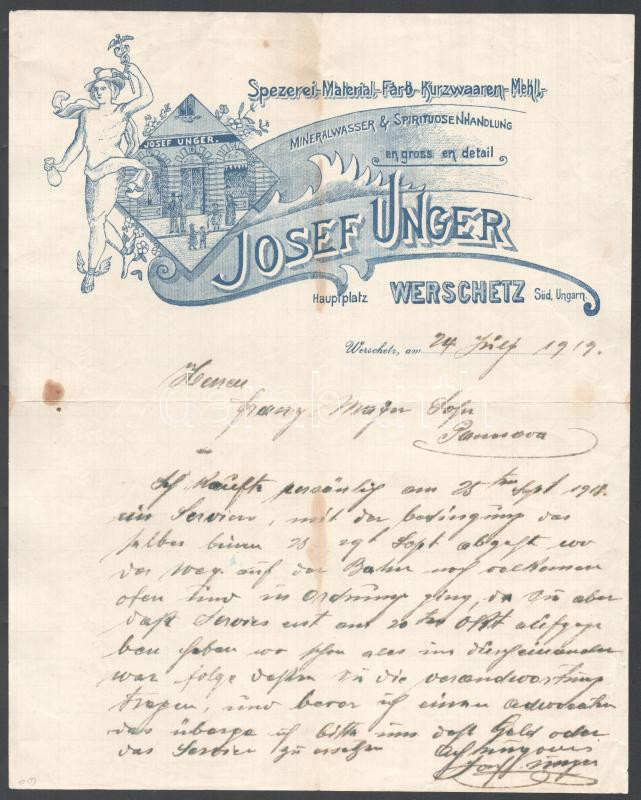 Spezerei-Material-Farb-Kurzwaaren-Mehl,-
MINERALWASSER & SPIRITUOSENHANDLUNG
en gross en detail
JOSEF UNGER.
JOSEF UNGER
Hauptplatz WERSCHETZ Süd. Ungarn.
Werschetz, am 24 July 1919.
Herren
Franz Mayer Sohn
Pancsova
Ich kaufte persönlich am 28ten Sept 1918.
ein Servies, mit der bedingung das
selbes binen 28 29t Sept abgeht wo
der Weg auf der Bahn noch volkomen
ofen und in Ordnung ging, da Sie aber
daß Servies erst am 20ten Okt aufgege
ben haben wo schon ales im durcheinander
war folge daßen Sie die verandwortung
tragen, und bevor ich einem advocaten
das übergebe ich bitte uns daß Geld oder
das Servies zu ersetzen Achtungsvoll
Josef Unger